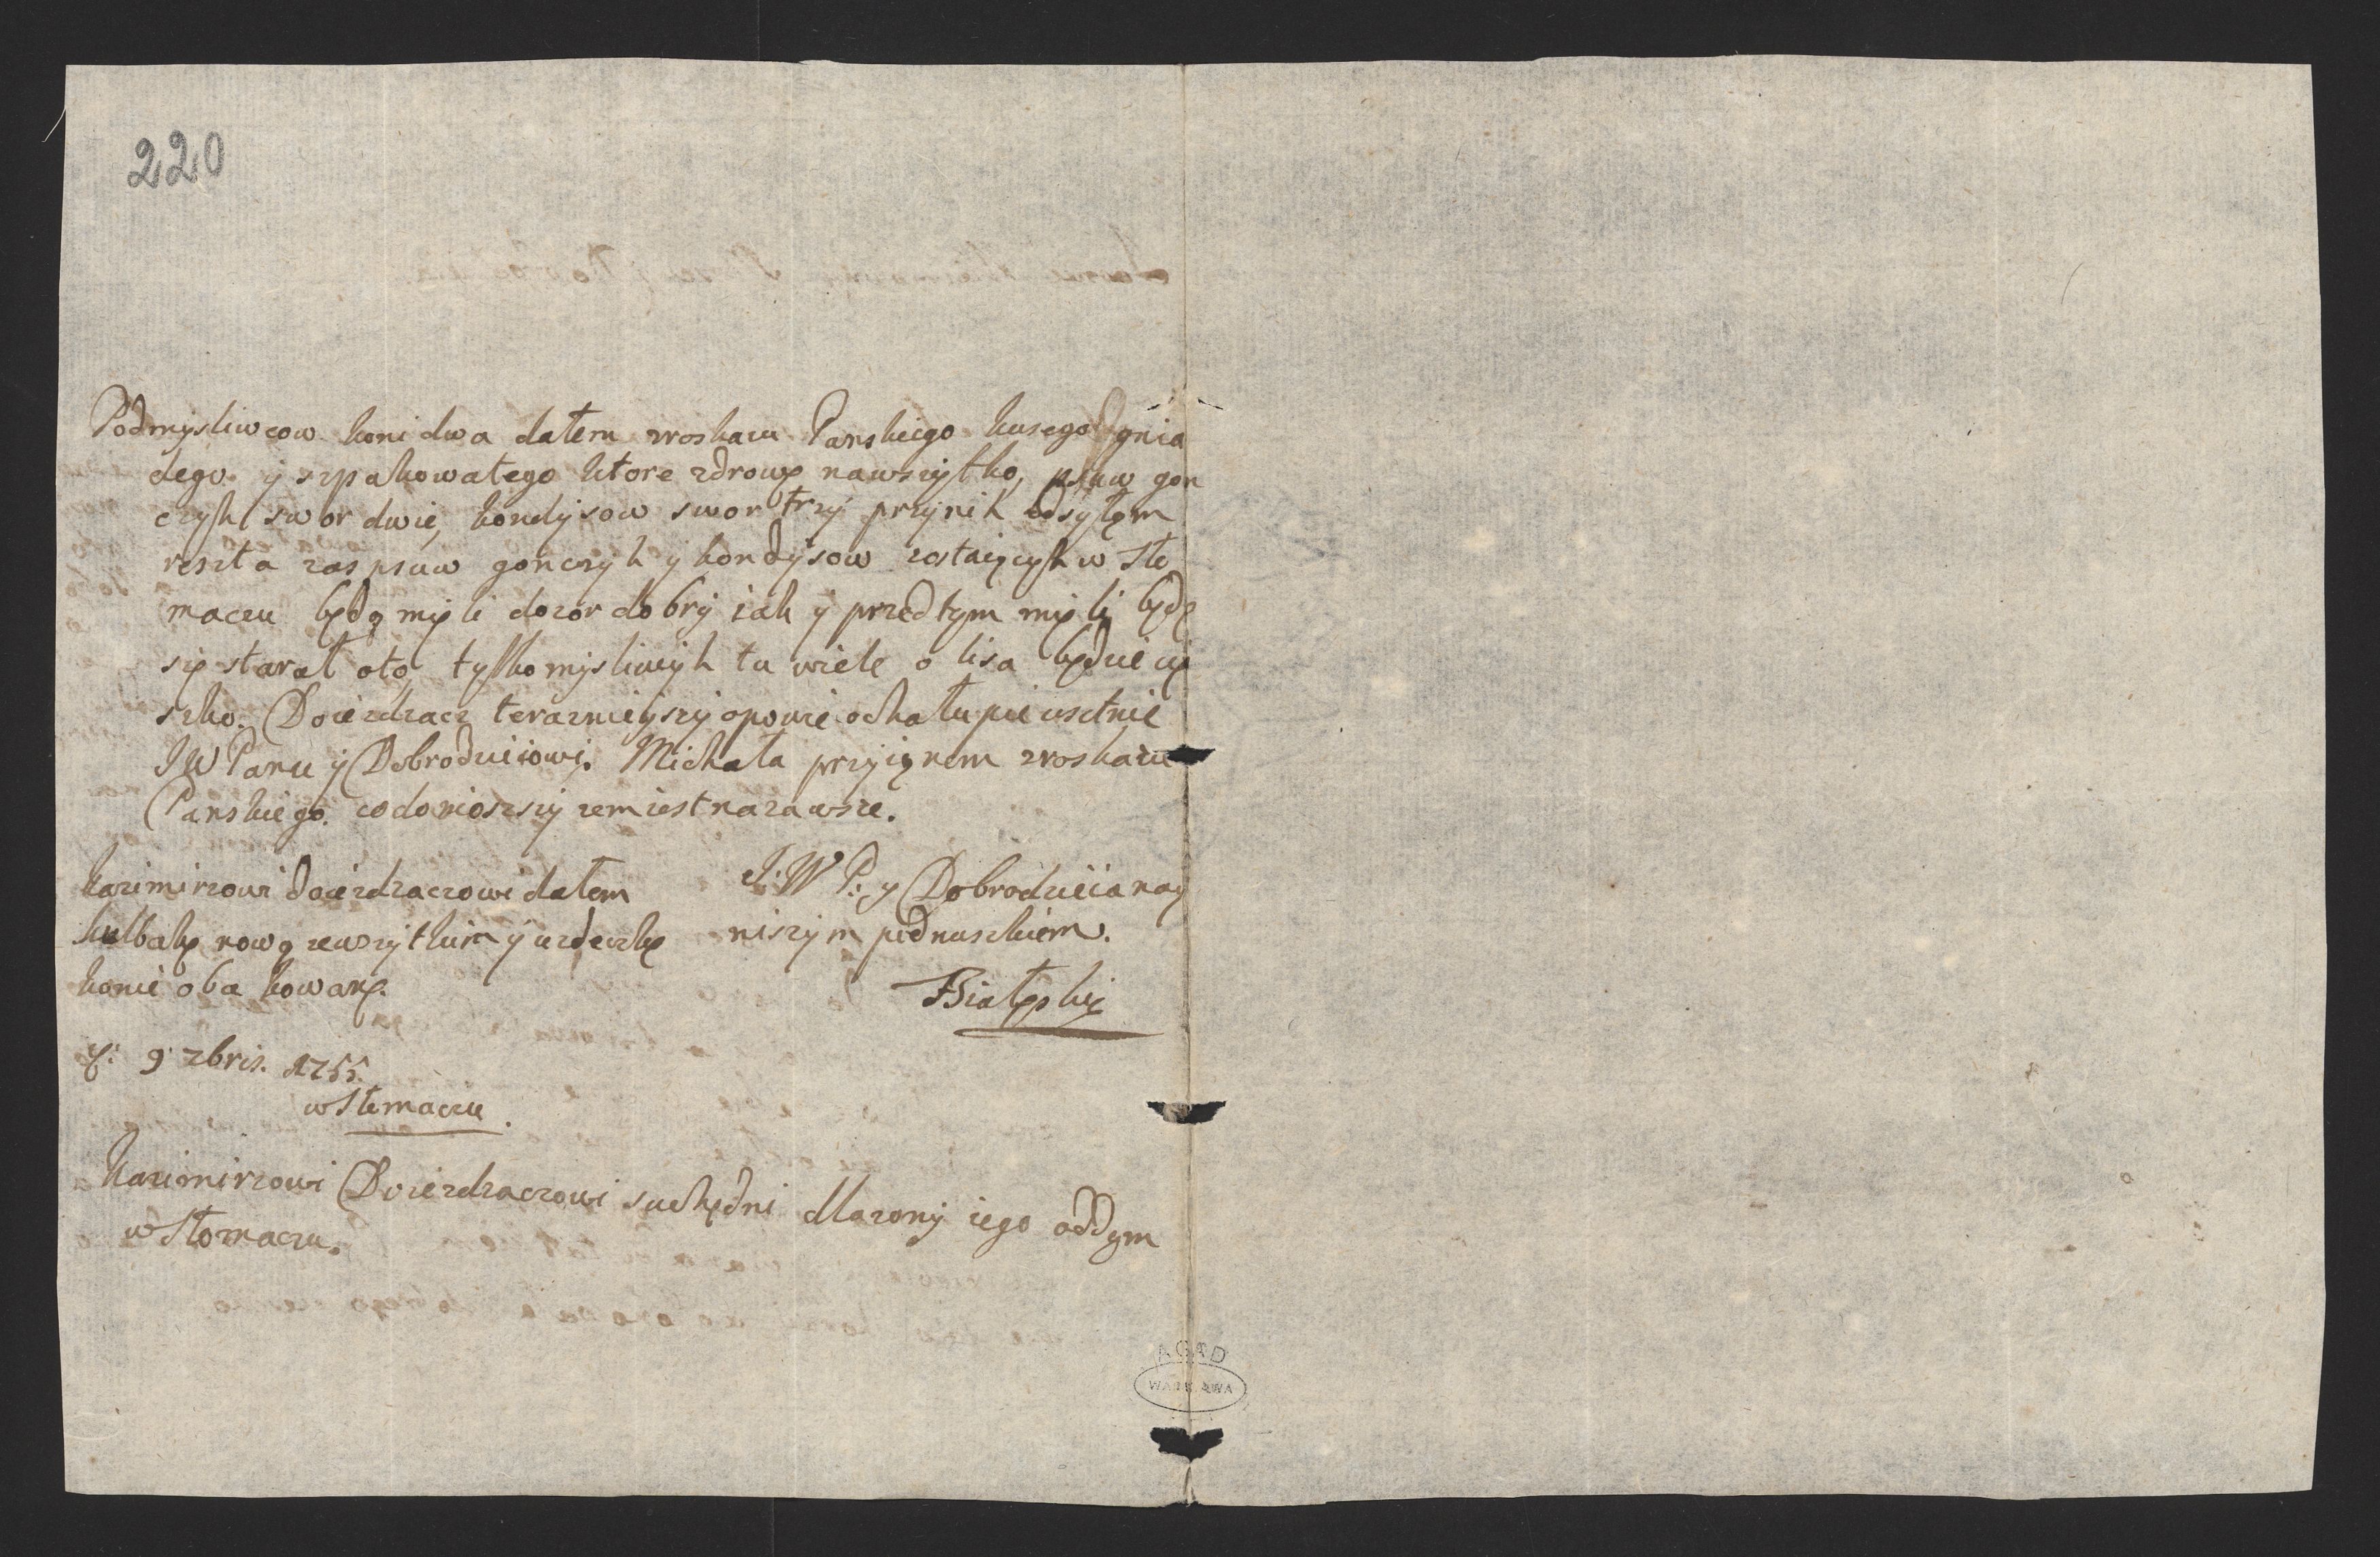 220
Podmysliwcow koni dwa dałem zroskazu Panskiego kusego gnia
dego y szpakowatego ktore zdrowę nawszytko, psuw gon
czyh swor dwie, kondysow swor trzy przynih odsyłęm
reszta zas psuw gonczyh y kondysow zostaięcyh w Tłe
maczu będą mięli dozór dobry iak y przedtym mięli będę
się starał oto, tylko mysliwyh tu wiele o lisa będzie cię
szko. Doiezdzacz teraznieyszy opowie ochałupie usetnie
JW Panu y Dobrodzieiowi. Michała przyiąnem zroskazu
Panskiego codonioszszy zemiest nazawsze.
kazimirzowi doiezdzaczowi dałem
kulbakę nową zewszytkim y uzdeczkę
konie oba kowanę.
J: W P: y Dobrodzieia nay
niszym podnuszkiem.
Białęskij
9 zbris. 1755.
w Tłemaczu.
Kazimirzowi Doiezdzaczowi suchędni dlazony iego oddym
w Tłomaczu.
AGAD
WARSZAWA